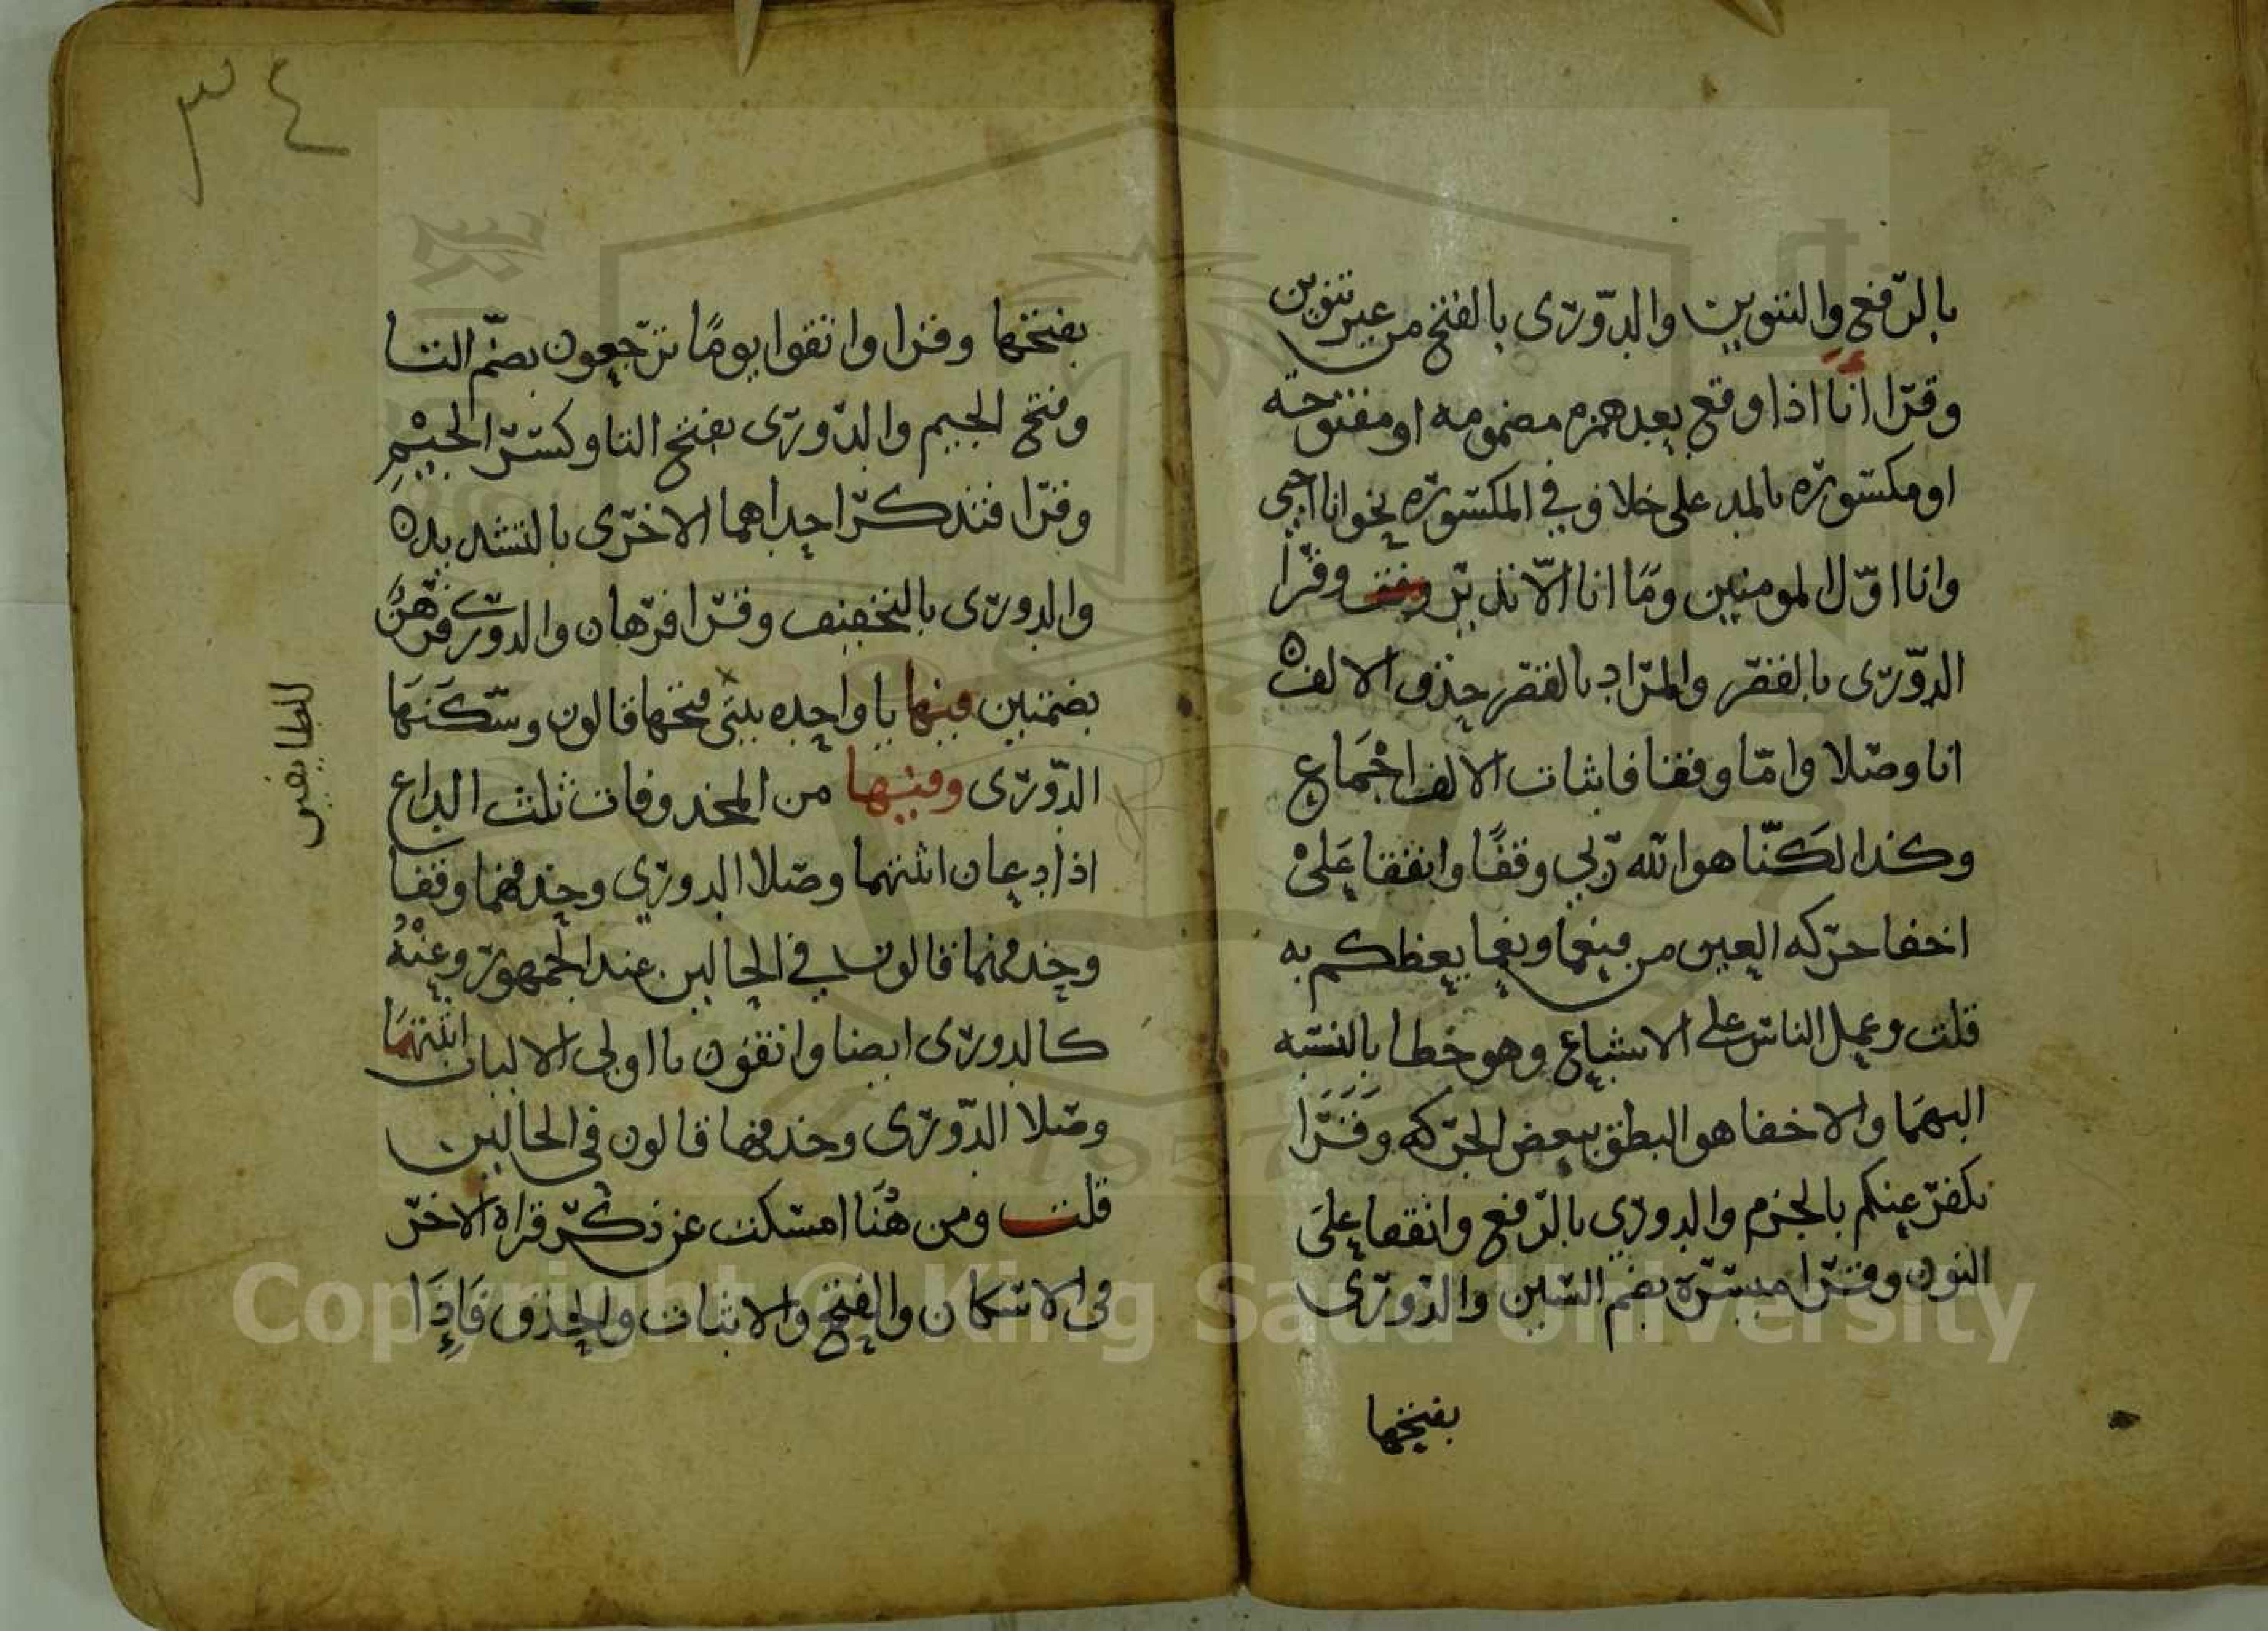 بالرّفع والتنوين والدّورى بالفتح من غير تنوين
وقرا انا اذا وقع بعد همزه مضمومه او مفتوحة
او مكسوره بالمد على خلاف في المكسوره نحو انا احيى
وانا اوّل المومنين ومَا انا الّا نذير وقرا
الدّورى بالقصر والمراد بالقصر حذف الالف
انا وصلا وامّا وقفا فاثبات الالف اجْمَاع
وكذا لكنّا هو الله ربي وقفًا واتفقا عَلىْ
اخفا حركه العين من فنعما ونعما يعظكم به
قلت وعمل الناس على الاشباع وهو خطا بالنسبه
اليهمَا والاخفا هو النطق ببعض الحركه وَقَرَا
نكفر عنكم بالجزم والدورى بالرفع واتفقا علىَ
النون وقرا ميسرة بضم السين والدّورى
بفتحها
٣٤
بفتحها وقرا واتقوا يومًا ترجعون بضمّ التا
وفتح الجيم والدّورى بفتح التا وكسر الجيْمِ
وقرا فتذكّر احداهما الاخرى بالتشديد
والدورى بالتخفيف وقرا فرهان والدورى فرُهُنٌ
بضمتين فيها يا واحده بيتى فتحها قالون وسّكَنَهَا
الدّورى وفيها من المحذوفات ثلث الداع
اذا دعان اثبتهما وصلا الدورى وحذفهما وقفا
وحذفهما قالون في الحالين عند الجمهور وعنْهُ
كالدورى ايضا واتقون يا اولى الالباب اثبتهَا
وصلا الدّورى وحذفها قالون فى الحالين
قلت ومن هُنَا امسكت عن ذكر قراه الاخر
فى الاسكان والفتح والاثبات والحذف فَاِذَا